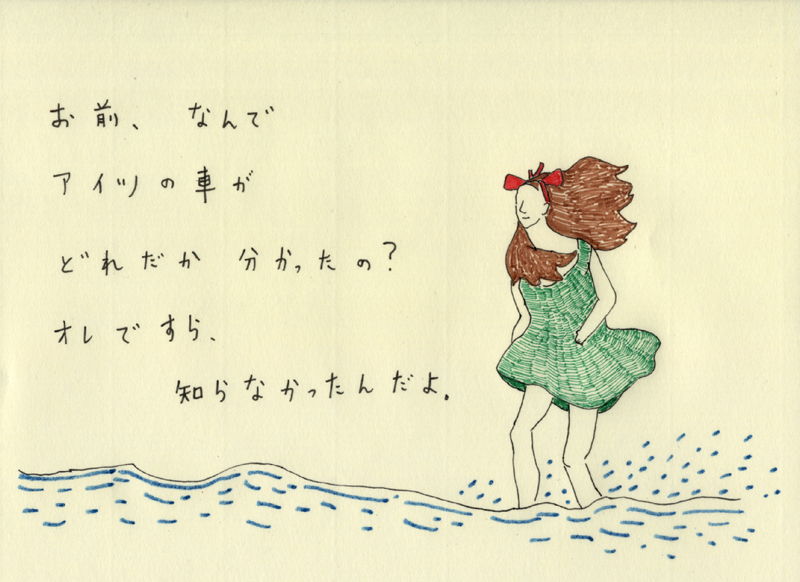 お前、なんで
アイツの車が
どれだか 分かったの?
オレですら、
知らなかったんだよ。